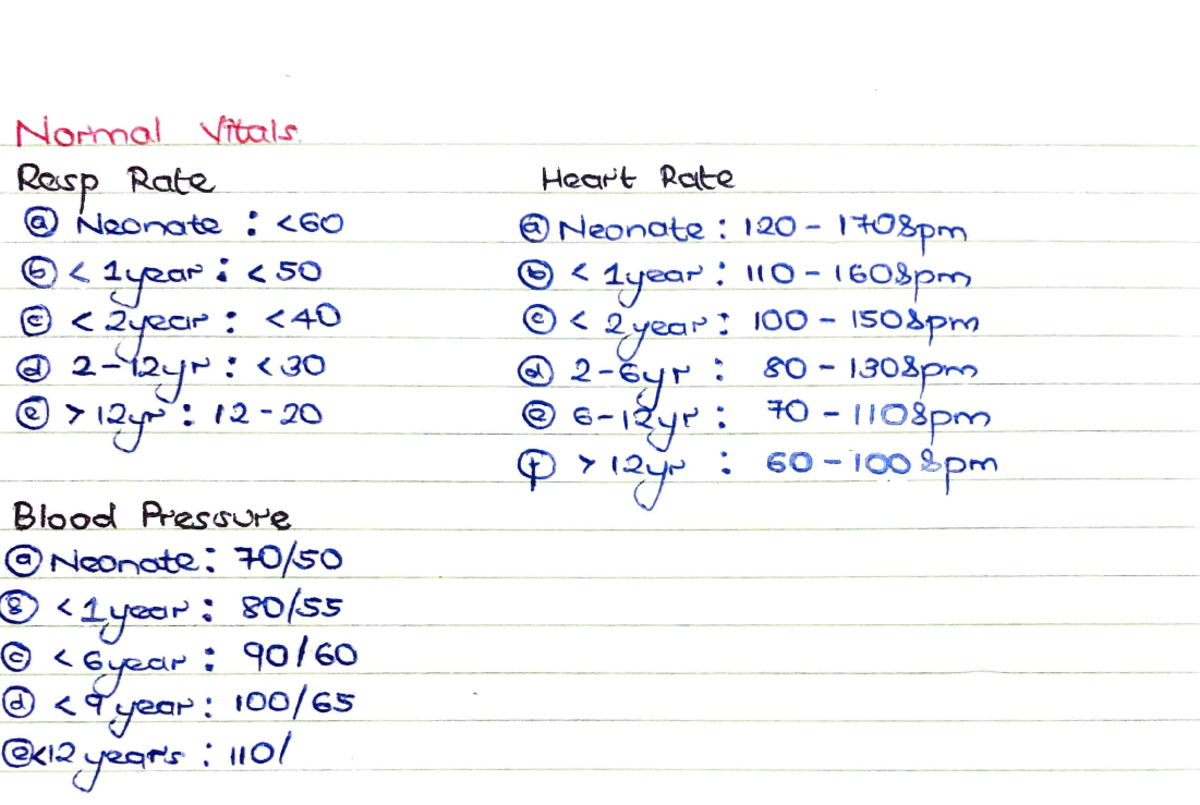 Normal Vitals.
Resp Rate
ⓐ Neonate : <60
ⓑ < 1year : < 50
ⓒ < 2year : <40
ⓓ 2-12yr : <30
ⓔ > 12yr : 12-20
Heart Rate
ⓐ Neonate : 120 - 170bpm
ⓑ < 1year : 110 - 160bpm
ⓒ < 2year : 100 - 150bpm
ⓓ 2-6yr : 80 - 130bpm
ⓔ 6-12yr : 70 - 110bpm
ⓕ > 12yr : 60 - 100 bpm
Blood Pressure
ⓐ Neonate : 70/50
ⓑ < 1year : 80/55
ⓒ < 6year : 90/60
ⓓ < 9year : 100/65
ⓔ <12 years : 110/